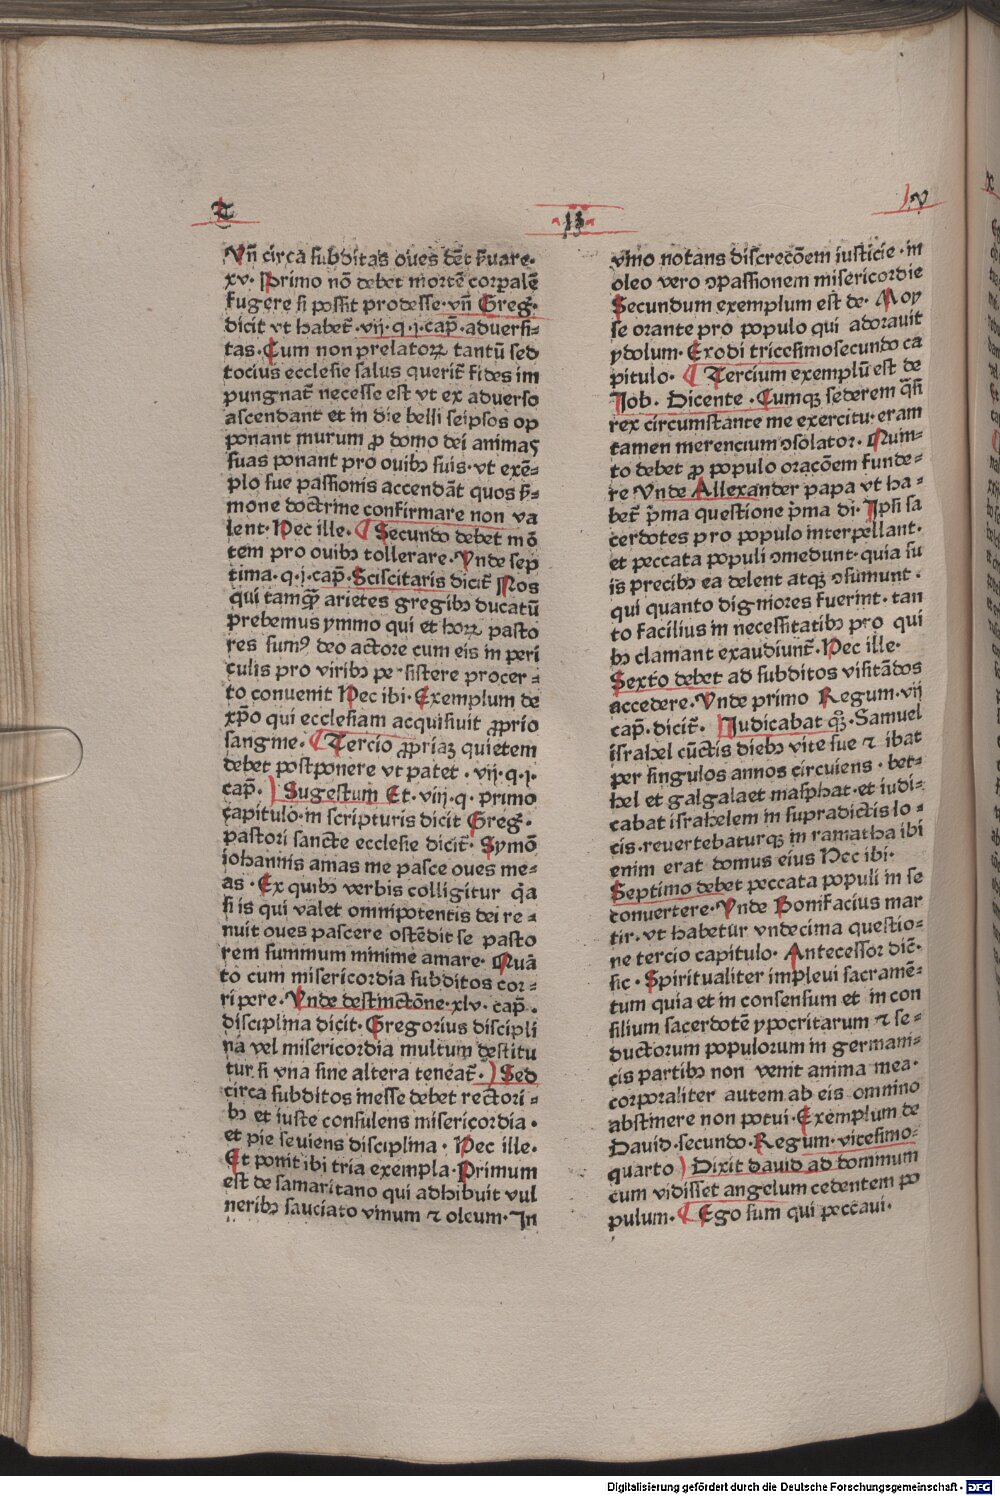 T
13
V
Vn̄ circa subditas oues dēt ẜuare·
xv· Primo nō debet mortē corpalē
fugere si possit prodesse·vn̄ Greg̃·
dicit vt habet̄· vij·q·j·cap̄·aduersi⸗
tas·Cum non prelatoꝝ tantū sed
tocius ecclesie salus querit̄ fides im
pungnat̄ necesse est vt ex aduerso
ascendant et in die belli seipsos op
ponant murum ꝓ domo dei animas
suas ponant pro ouibꝫ suis·vt exē⸗
plo sue passionis accendāt quos ẜ⸗
mone doctrine confirmare non va
lent·Hec ille· ¶ Secundo debet mō
tem pro ouibꝫ tollerare·Vnde sep
tima·q·j·cap̄·Sciscitaris dicit̄ Nos
qui tamꝙ̄ arietes gregibꝫ ducatū
prebemus ymmo qui et hoꝝ pasto
res sumꝰ deo actore cum eis in peri
culis pro viribꝫ persistere procer⸗
to conuenit Hec ibi·Exemplum de
xp̄o qui ecclesiam acquisiuit ꝓprio
sangine· ¶ Tercio ꝓpriaꝫ quietem
debet postponere vt patet·vij·q·j·
cap̄· ) Sugestum Et·viij·q· primo
capitulo·in scripturis dicit Greg̃·
pastori sancte ecclesie dicit̄· Symō
iohannis amas me pasce oues me⸗
as·Ex quibꝫ verbis colligitur q̄a
si is qui valet omnipotentis dei re⸗
nuit oues pascere ostēdit se pasto
rem summum minime amare· Quā
to cum misericordia subditos cor⸗
ripere·Vnde destinctōne·xlv·cap̄·
disciplina dicit·Gregorius discipli
na vel misericordia multum destitu
tur si vna sine altera teneat̄· ) Sed
circa subditos inesse debet rectori⸗
bꝫ et iuste consulens misericordia·
et pie seuiens disciplina·Hec ille·
Et ponit ibi tria exempla·Primum
est de samaritano qui adhibuit vul
neribꝫ sauciato vinum ⁊ oleum·In
vino notans discrecōem iusticie·in
oleo vero ꝯpassionem misericordie
Secundum exemplum est de· Moy
se orante pro populo qui adorauit
ydolum·Exodi tricesimosecundo ca
pitulo· ¶ Tercium exemplū est de
Job· Dicente·Cumqꝫ sederem q̄si
rex circumstante me exercitu·eram
tamen merencium ꝯsolator·Quin⸗
to debet ꝓ populo oracōem funde⸗
re Vnde Allexander papa vt ha⸗
bet̄ p̄ma questione p̄ma di·Ipsi sa
cerdotes pro populo interpellant·
et peccata populi ꝯmedunt·quia su
is precibꝫ ea delent atqꝫ ꝯsumunt·
qui quanto digniores fuerint·tan
to facilius in necessitatibꝫ pro qui
bꝫ clamant exaudiunt̄·Hec ille·
Sexto debet ad subditos visitādos
accedere·Vnde primo Regum·vij
cap̄·dicit̄· ) Judicabat qꝫ̊·Samuel
israhel cūctis diebꝫ vite sue ⁊ ibat
per singulos annos circuiens·bet⸗
hel et galgalaet masphat·et iudi⸗
cabat israhelem in supradictis lo⸗
cis·reuertebaturqꝫ in ramatha ibi
enim erat domus eius Hec ibi·
Septimo debet peccata populi in se
conuertere·Vnde Bonifacius mar
tir·vt habetur vndecima questio⸗
ne tercio capitulo· Antecessor dic̄·
sic·Spiritualiter impleui sacramē⸗
tum quia et in consensum et in con
silium sacerdotē ypocritarum ⁊ se⸗
ductorum populorum in germani⸗
cis partibꝫ non venit anima mea·
corporaliter autem ab eis omnino
abstinere non potui·Exemplum de
Dauid·secundo·Regum·vicesimo⸗
quarto ) Dixit dauid ad dominum
cum vidisset angelum cedentem po
pulum· ¶ Ego sum qui peccaui·
Digitalisierung gefördert durch die Deutsche Forschungsgemeinschaft - DFG